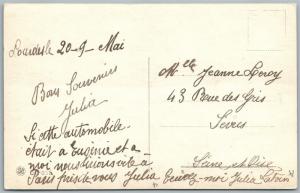 Lourdes le 20-9- Mai
Bons Souvenirs
Julia
Si cette automobile
était à Eugénie et à
moi nous
Paris près de vous Julia
Melle Jeanne Leroy
43 Rue des Gris
Sèvres
Seine et Oise
Écrivez-moi Julia